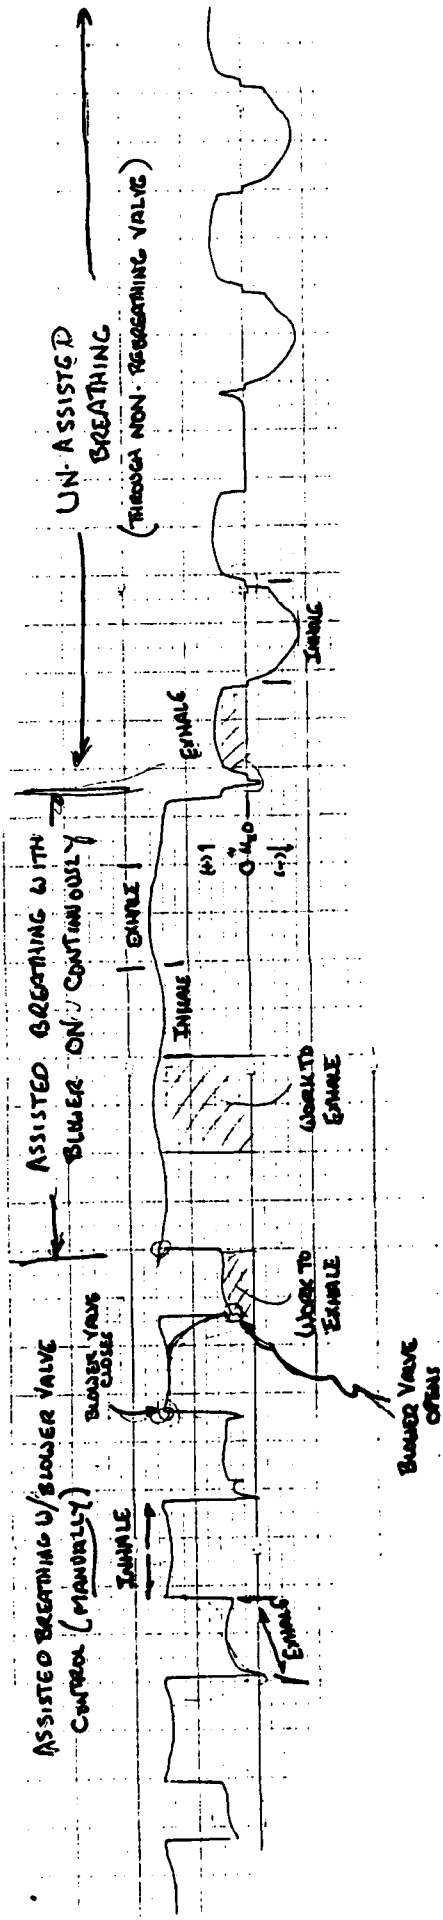 ASSISTED BREATHING W/BLOWER VALVE
CONTROL (MANUALLY)
INHALE
EXHALE
BLOWER VALVE
CLOSES
BLOWER VALVE
OPENS
WORK TO
EXHALE
ASSISTED BREATHING WITH
BLOWER ON CONTINUOUSLY
WORK TO
EXHALE
INHALE
EXHALE
(+)
0 "H2O
(-)
EXHALE
INHALE
UN-ASSISTED
BREATHING
(THROUGH NON-REBREATHING VALVE)